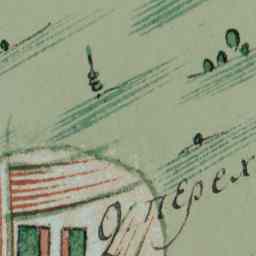 О перех